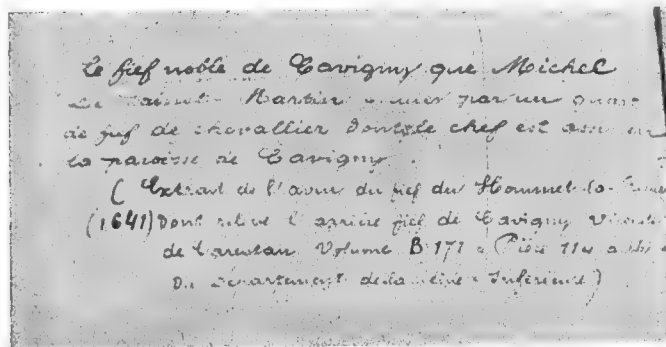 Le fief noble de Cavigny que Michel
de Saint Martin par un quart
de fief de chevallier dont le chef est assis en
la paroisse de Cavigny.
( Extrait de l'aveu du fief du Hommet la
(1641) Dont relève l'arrière fief de Cavigny Vicomté
de Carentan Volume B 171 Pièce 114
Du Département de la Seine Inférieure)